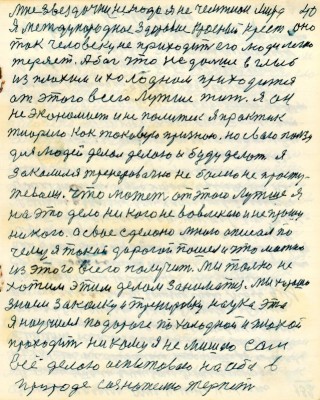 мне звездочки не надо я не чемпион мира
Я международное Здоровье Красный крест оно
так человеку не приходит его люди легко
теряет. Я бог это надо мне в глыб
из плохих и холодном приходится
от этого всего Лутше жит. Я он
не экономист и не политик я практик
творего как таковую признаю. но свою пользу
для людей делал делаю и буду делат Я
закалился тренеровано не болею не просту-
жеваюс. Что может от этого Лутше я
на это дело никого не вовлекаю и не прошу
никого. а свое сделоно мною описал по
чему я такой дорогой пошел и что можно
из этого всего получит. Мы толко не
хотим этим делом заниматся. Мы хорошо
знаем закалку и тренировку наука эта
Я научился по дороге по холодной и плохой
проходит никому я не мешаю сам
всё делаю испитоваю на себе в
природе сознателно терпет